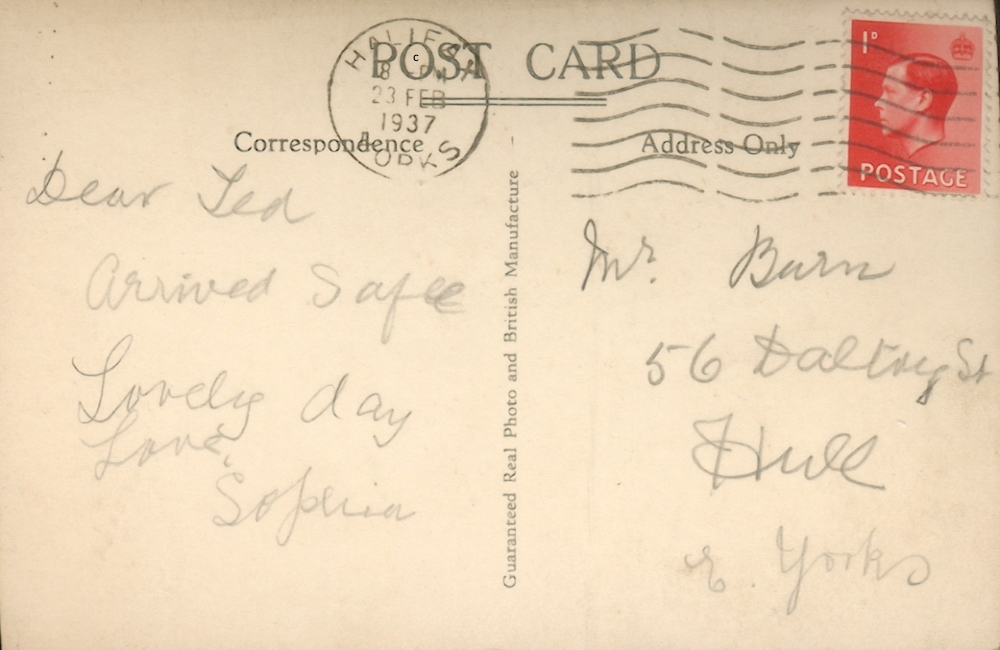 POST CARD
HALIFAX
8 PM
23 FEB
1937
YORKS
C
1D
POSTAGE
Correspondence
Address Only
Dear Ted
Arrived Safe
Lovely day
Love,
Sophia
Guaranteed Real Photo and British Manufacture
Mr. Burn
56 Daltry St
Hull
E. Yorks